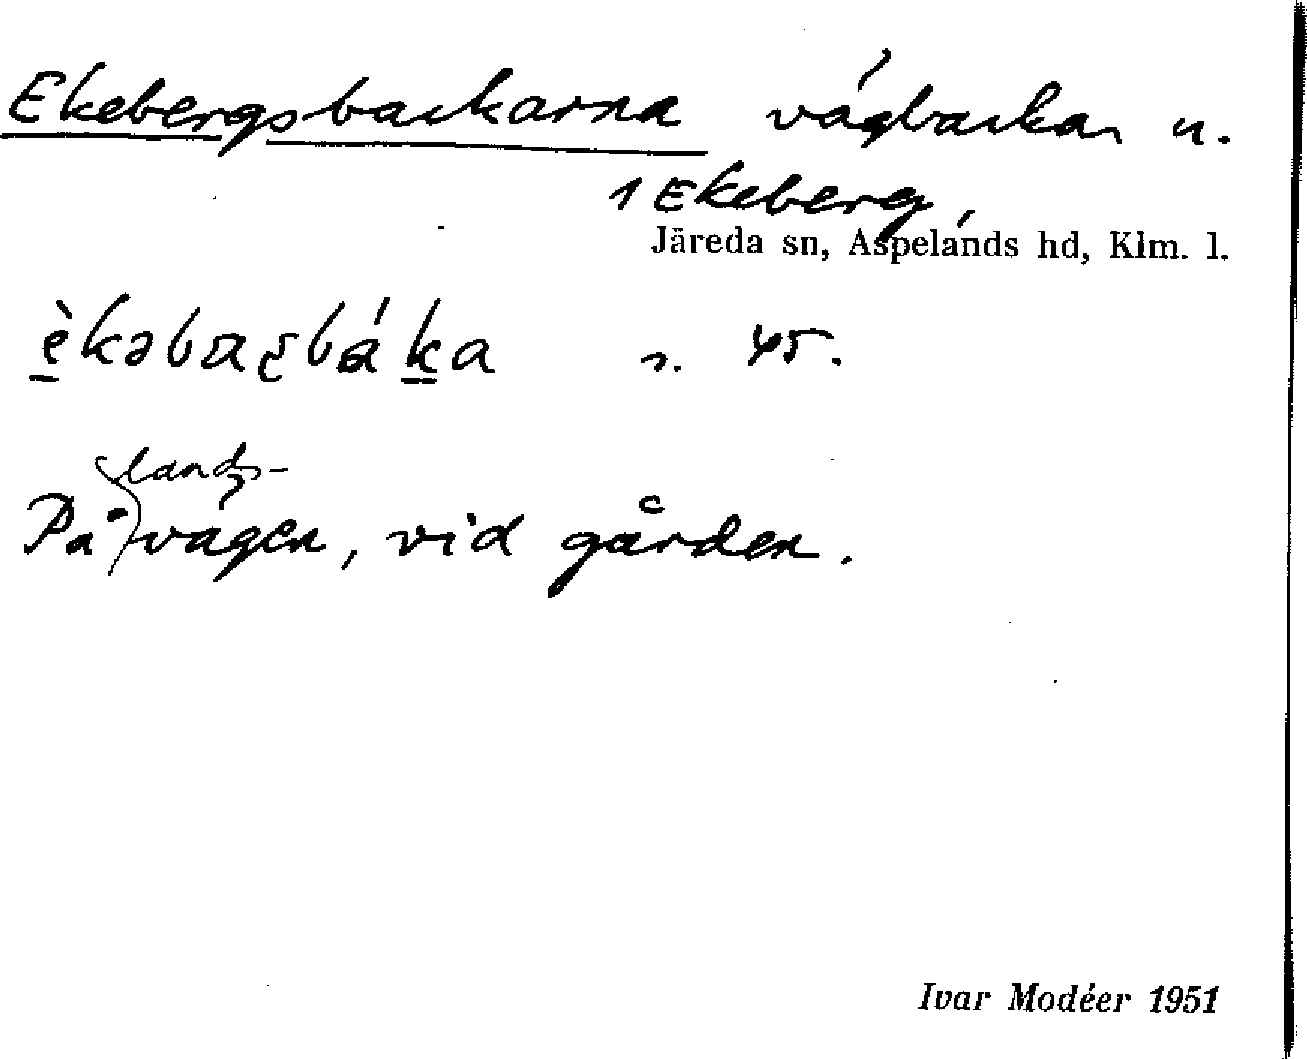 Ekebergsbackarna vägbackar u.
1 Ekeberg,
Järeda sn, Aspelands hd, Klm. l.
s. 45.
På landsvägen, vid gården.
Ivar Modéer 1951